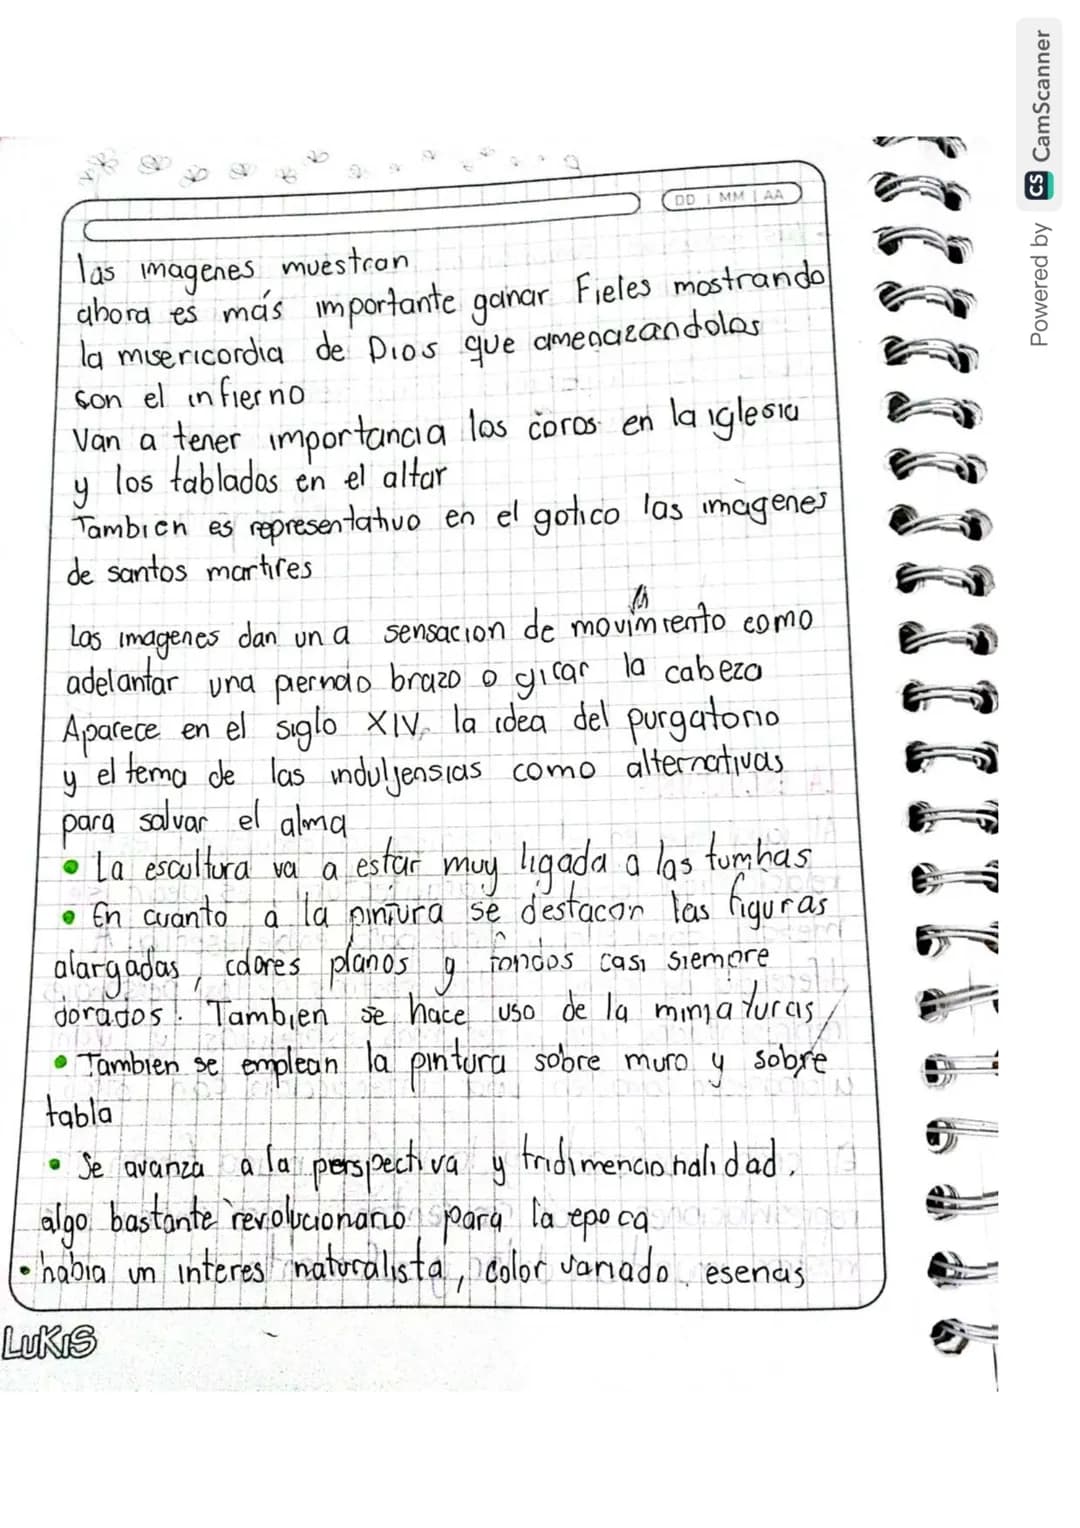 Powered by CS CamScanner
DD | MM | AA
las imagenes muestran
ahora es más importante ganar Fieles mostrando
la misericordia de Dios que amenazandolos
son el infierno
Van a tener importancia los coros en la iglesia
y los tablados en el altar
Tambien es representativo en el gotico las imagenes
de santos martires
Las imagenes dan una sensacion de movimiento como
adelantar una pierna o brazo o girar la cabeza
Aparece en el siglo XIV, la idea del purgatorio
y el tema de las induljensias como alternativas
para salvar el alma
• La escultura va a estar muy ligada a las tumbas
• En cuanto a la pintura se destacan las figuras
alargadas, colores planos y fondos casi siempre
dorados. Tambien se hace uso de la miniaturas
• Tambien se emplean la pintura sobre muro y sobre
tabla
• Se avanza a la perspectiva y tridimencionalidad,
algo bastante revolucionario para la epoca
• habia un interes naturalista, color variado, esenas
LUKIS